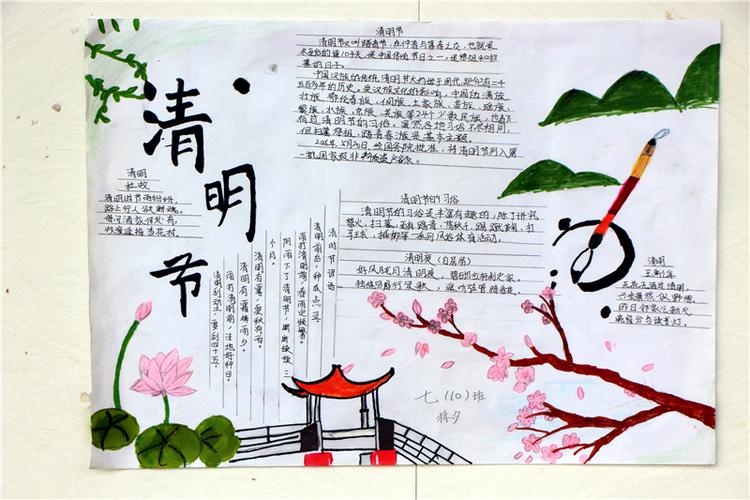 清明节
清明节
清明节又叫踏青节,在仲春与暮春之交,也就是
冬至后的第104天,是中国传统节日之一,是祭祖和扫
墓的日子。
中国汉族的传统清明节大约始于周代,距今已有二千
五百多年的历史。受汉族文化的影响,中国的满族、
壮族、鄂伦春族、侗族、土家族、苗族、瑶族、
黎族、水族、京族、羌族等24个少数民族,也都
有过清明节的习俗。虽然各地习俗不尽相同,
但扫墓祭祖、踏青春游是基本主题。
5月20日,经国务院批准,将清明节列入第
一批国家级非
清明
杜牧
清明时节雨纷纷,
路上行人欲断魂。
借问酒家何处有,
牧童遥指杏花村。
清明节的习俗
清明节的习俗是丰富有趣的,除了讲究
禁火、扫墓,还有踏青、荡秋千、踢蹴鞠、打
马球、插柳等一系列风俗体育活动。
清明夜(白居易)
好风胧月清明夜,
独绕回廊行复歌,
清明
王禹偁
无花无酒过清明,
兴味萧然似野僧。
昨日邻家乞新火,
晓窗分与读书灯。
清明节谚语
清明前后,种瓜点豆。
雨打清明前,春雨定频繁。
阴雨下了清明节,断断续续三
个月。
清明有雾,夏秋有雨。
清明有霜梅雨少。
雨打清明前,洼地好种田。
清明刮动土,要刮四十五。
七(10)班